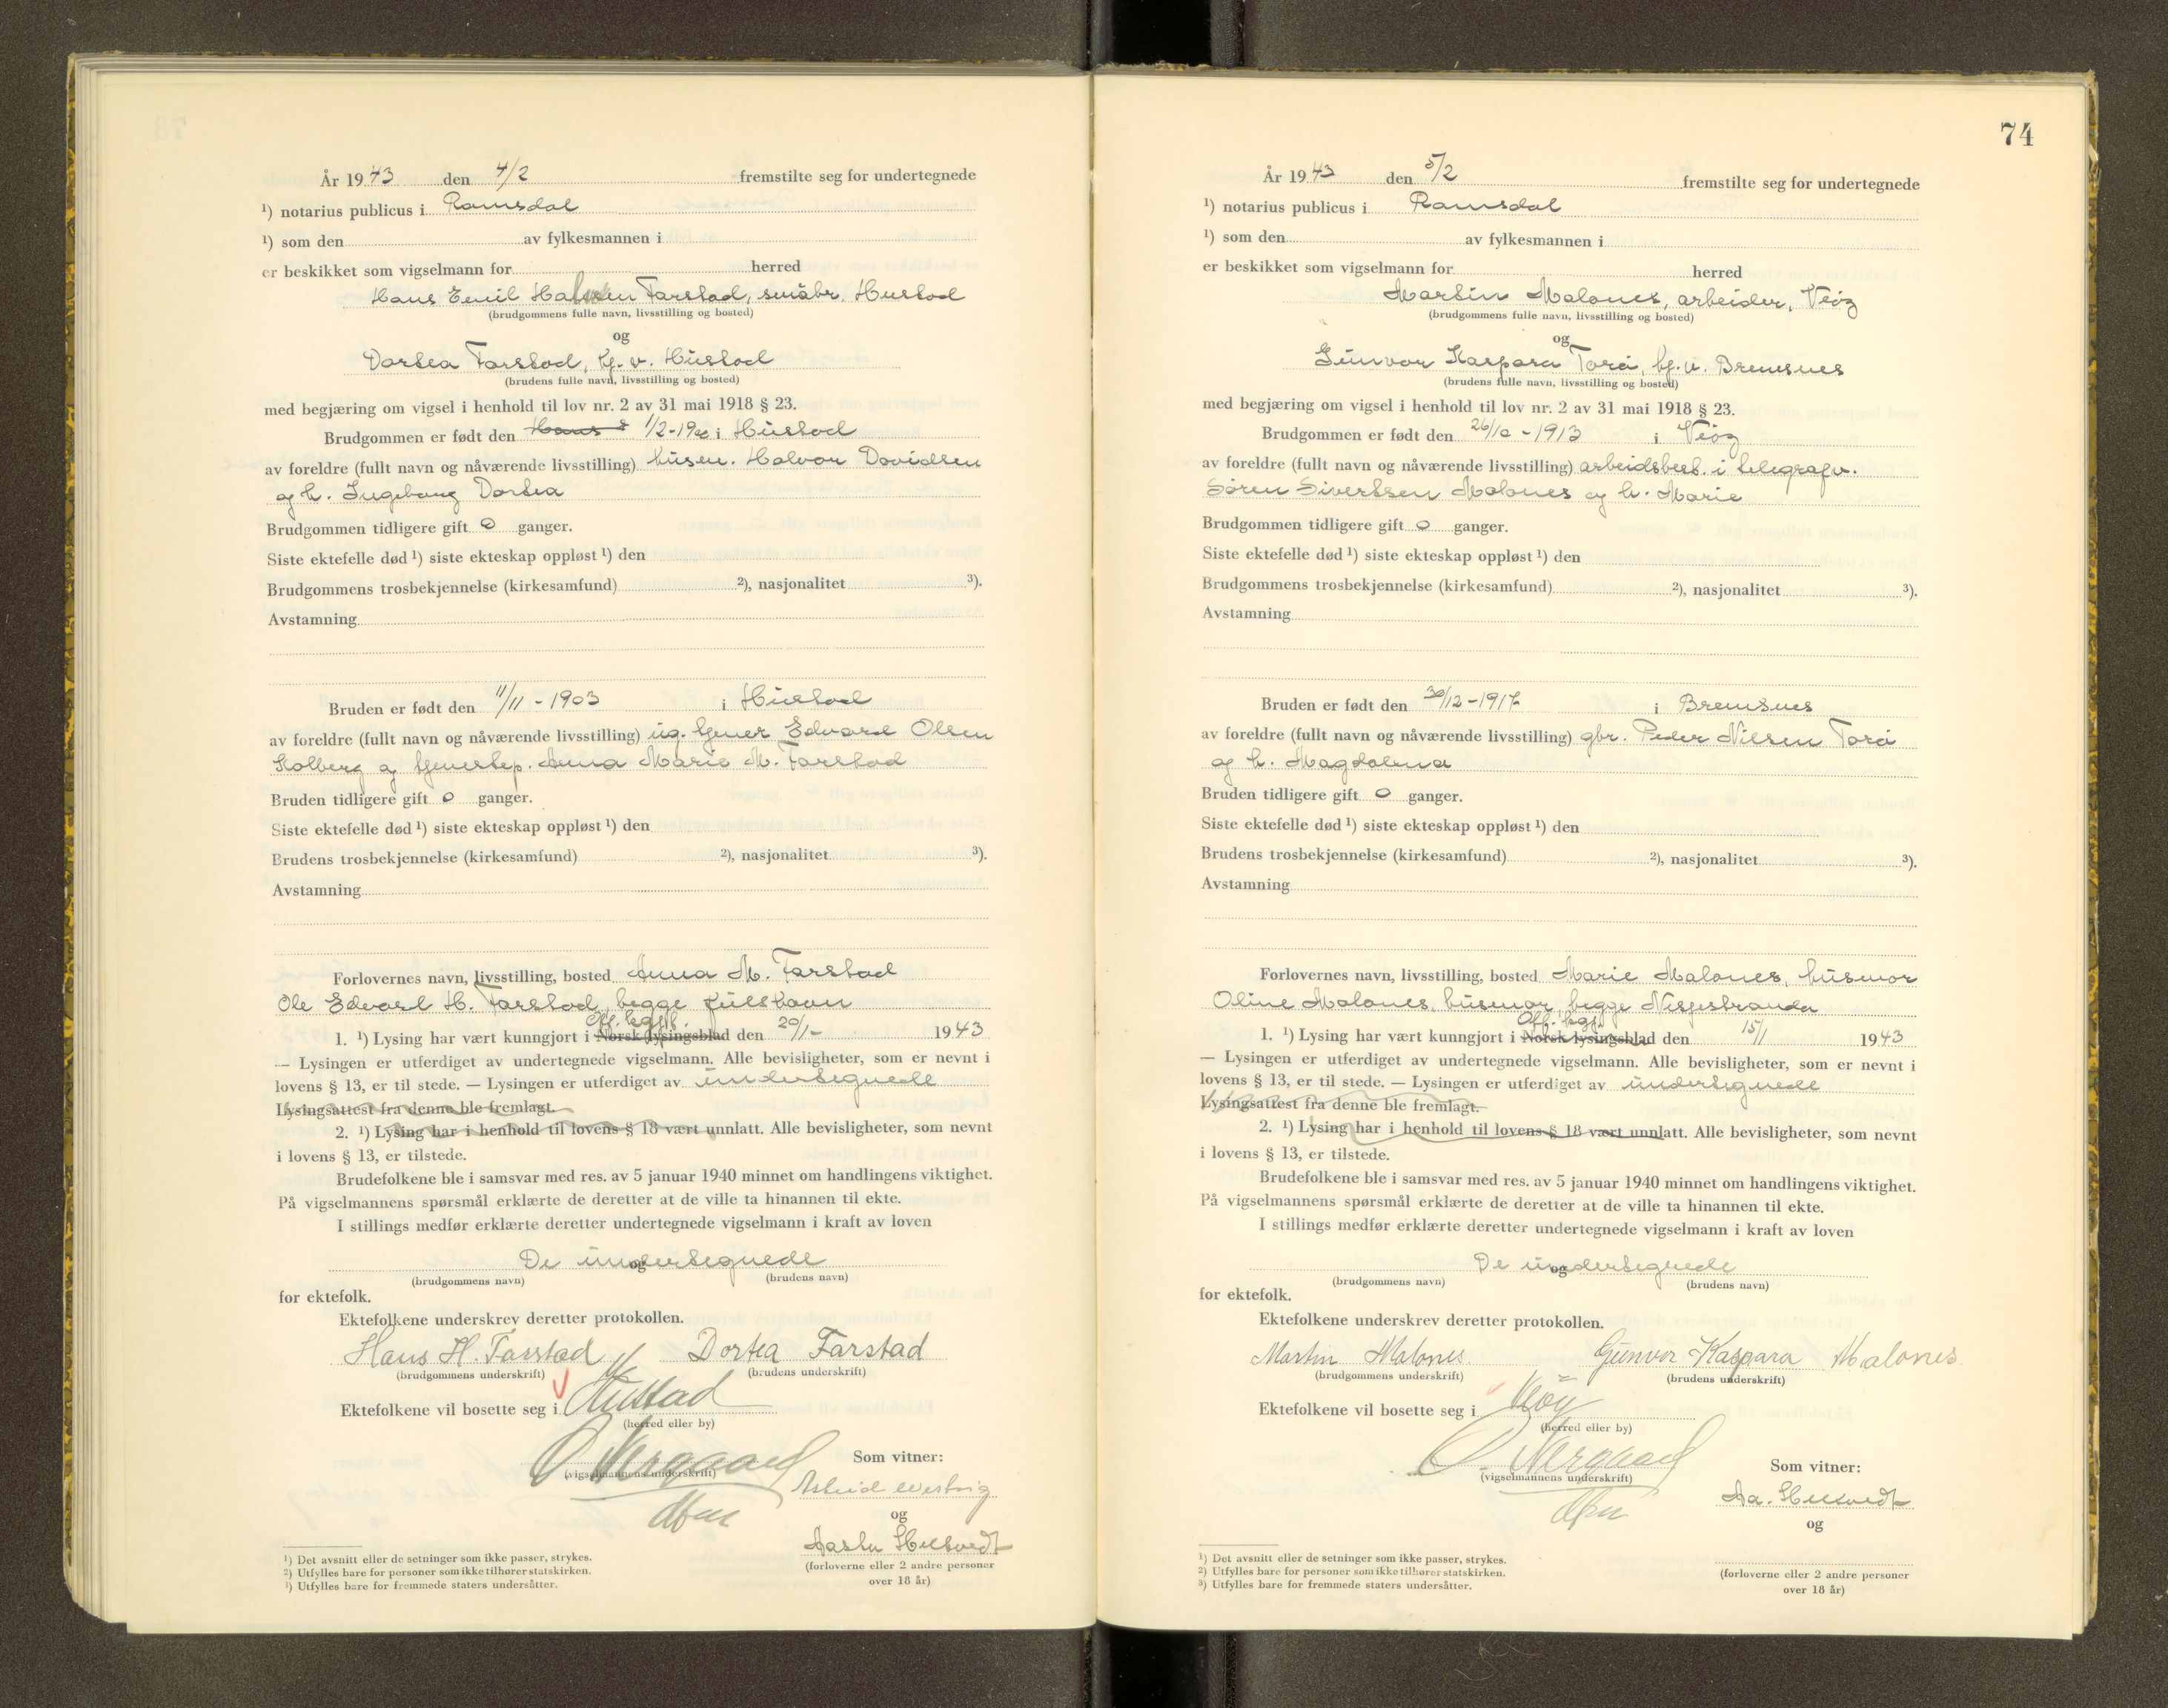 År 1943 den 4/2 fremstilte seg for undertegnede
¹) notarius publicus i Romsdal
¹) som den av fylkesmannen i
er beskikket som vigselmann for herred
Hans Emil Farstad, småbr. Hustad
(brudgommens fulle navn, livsstilling og bosted)
og
Dortea Farstad, tj. v. Hustad
(brudens fulle navn, livsstilling og bosted)
med begjæring om vigsel i henhold til lov nr. 2 av 31 mai 1918 § 23.
Brudgommen er født den Hans 1/2-19 i Hustad
av foreldre (fullt navn og nåværende livsstilling) husm. Halvor Davidsen
og h. Ingeborg Dortea
Brudgommen tidligere gift 0 ganger.
Siste ektefelle død ¹) siste ekteskap oppløst ¹) den
Brudgommens trosbekjennelse (kirkesamfund) ²), nasjonalitet ³).
Avstamning
Bruden er født den 11/11 - 1903 i Hustad
av foreldre (fullt navn og nåværende livsstilling) ug. tjener Edvard Olsen
Kolberg og tjenestep. Anna Marie M. Farstad
Bruden tidligere gift 0 ganger.
Siste ektefelle død ¹) siste ekteskap oppløst ¹) den
Brudens trosbekjennelse (kirkesamfund) ²), nasjonalitet ³).
Avstamning
Forlovernes navn, livsstilling, bosted Anna M. Farstad
Ole Edvard H. Farstad, begge
Off. kgj.
1. ¹) Lysing har vært kunngjort i Norsk lysingsblad den 20/1- 1943
— Lysingen er utferdiget av undertegnede vigselmann. Alle bevisligheter, som er nevnt i
lovens § 13, er til stede. — Lysingen er utferdiget av undertegnede
Lysingsattest fra denne ble fremlagt.
2. ¹) Lysing har i henhold til lovens § 18 vært unnlatt. Alle bevisligheter, som nevnt
i lovens § 13, er tilstede.
Brudefolkene ble i samsvar med res. av 5 januar 1940 minnet om handlingens viktighet.
På vigselmannens spørsmål erklærte de deretter at de ville ta hinannen til ekte.
I stillings medfør erklærte deretter undertegnede vigselmann i kraft av loven
De undertegnede
og
(brudgommens navn) (brudens navn)
for ektefolk.
Ektefolkene underskrev deretter protokollen.
Hans H. Farstad Dortea Farstad
(brudgommens underskrift) (brudens underskrift)
Ektefolkene vil bosette seg i Hustad
(herred eller by)
O. Nergaard
(vigselmannens underskrift)
Som vitner:
Astrid
og
(forloverne eller 2 andre personer
over 18 år)
¹) Det avsnitt eller de setninger som ikke passer, strykes.
²) Utfylles bare for personer som ikke tilhører statskirken.
³) Utfylles bare for fremmede staters undersåtter.
74
År 1943 den 5/2 fremstilte seg for undertegnede
¹) notarius publicus i Romsdal
¹) som den av fylkesmannen i
er beskikket som vigselmann for herred
Martin Malones, arbeider, Veøy
(brudgommens fulle navn, livsstilling og bosted)
og
Gunvor Kaspara Torå, tj. v. Bremsnes
(brudens fulle navn, livsstilling og bosted)
med begjæring om vigsel i henhold til lov nr. 2 av 31 mai 1918 § 23.
Brudgommen er født den 26/10 - 1913 i Veøy
av foreldre (fullt navn og nåværende livsstilling) arbeidsbest. i telegrafv.
Sören Sivertsen Malones og h. Marie
Brudgommen tidligere gift 0 ganger.
Siste ektefelle død ¹) siste ekteskap oppløst ¹) den
Brudgommens trosbekjennelse (kirkesamfund) ²), nasjonalitet ³).
Avstamning
Bruden er født den 30/12-1917 i Bremsnes
av foreldre (fullt navn og nåværende livsstilling) gbr. Peder Nilsen Torå
og h. Magdalena
Bruden tidligere gift 0 ganger.
Siste ektefelle død ¹) siste ekteskap oppløst ¹) den
Brudens trosbekjennelse (kirkesamfund) ²), nasjonalitet ³).
Avstamning
Forlovernes navn, livsstilling, bosted Marie Malones, husmor
Oline Malones, husmor, begge Nesjestranda
Off. kgj.
1. ¹) Lysing har vært kunngjort i Norsk lysingsblad den 15/1 1943
— Lysingen er utferdiget av undertegnede vigselmann. Alle bevisligheter, som er nevnt i
lovens § 13, er til stede. — Lysingen er utferdiget av undertegnede
Lysingsattest fra denne ble fremlagt.
2. ¹) Lysing har i henhold til lovens § 18 vært unnlatt. Alle bevisligheter, som nevnt
i lovens § 13, er tilstede.
Brudefolkene ble i samsvar med res. av 5 januar 1940 minnet om handlingens viktighet.
På vigselmannens spørsmål erklærte de deretter at de ville ta hinannen til ekte.
I stillings medfør erklærte deretter undertegnede vigselmann i kraft av loven
De undertegnede
og
(brudgommens navn) (brudens navn)
for ektefolk.
Ektefolkene underskrev deretter protokollen.
Martin Malones Gunvor Kaspara Malones
(brudgommens underskrift) (brudens underskrift)
Ektefolkene vil bosette seg i Veøy
(herred eller by)
O. Nergaard
(vigselmannens underskrift)
Som vitner:
Aa.
og
(forloverne eller 2 andre personer
over 18 år)
¹) Det avsnitt eller de setninger som ikke passer, strykes.
²) Utfylles bare for personer som ikke tilhører statskirken.
³) Utfylles bare for fremmede staters undersåtter.